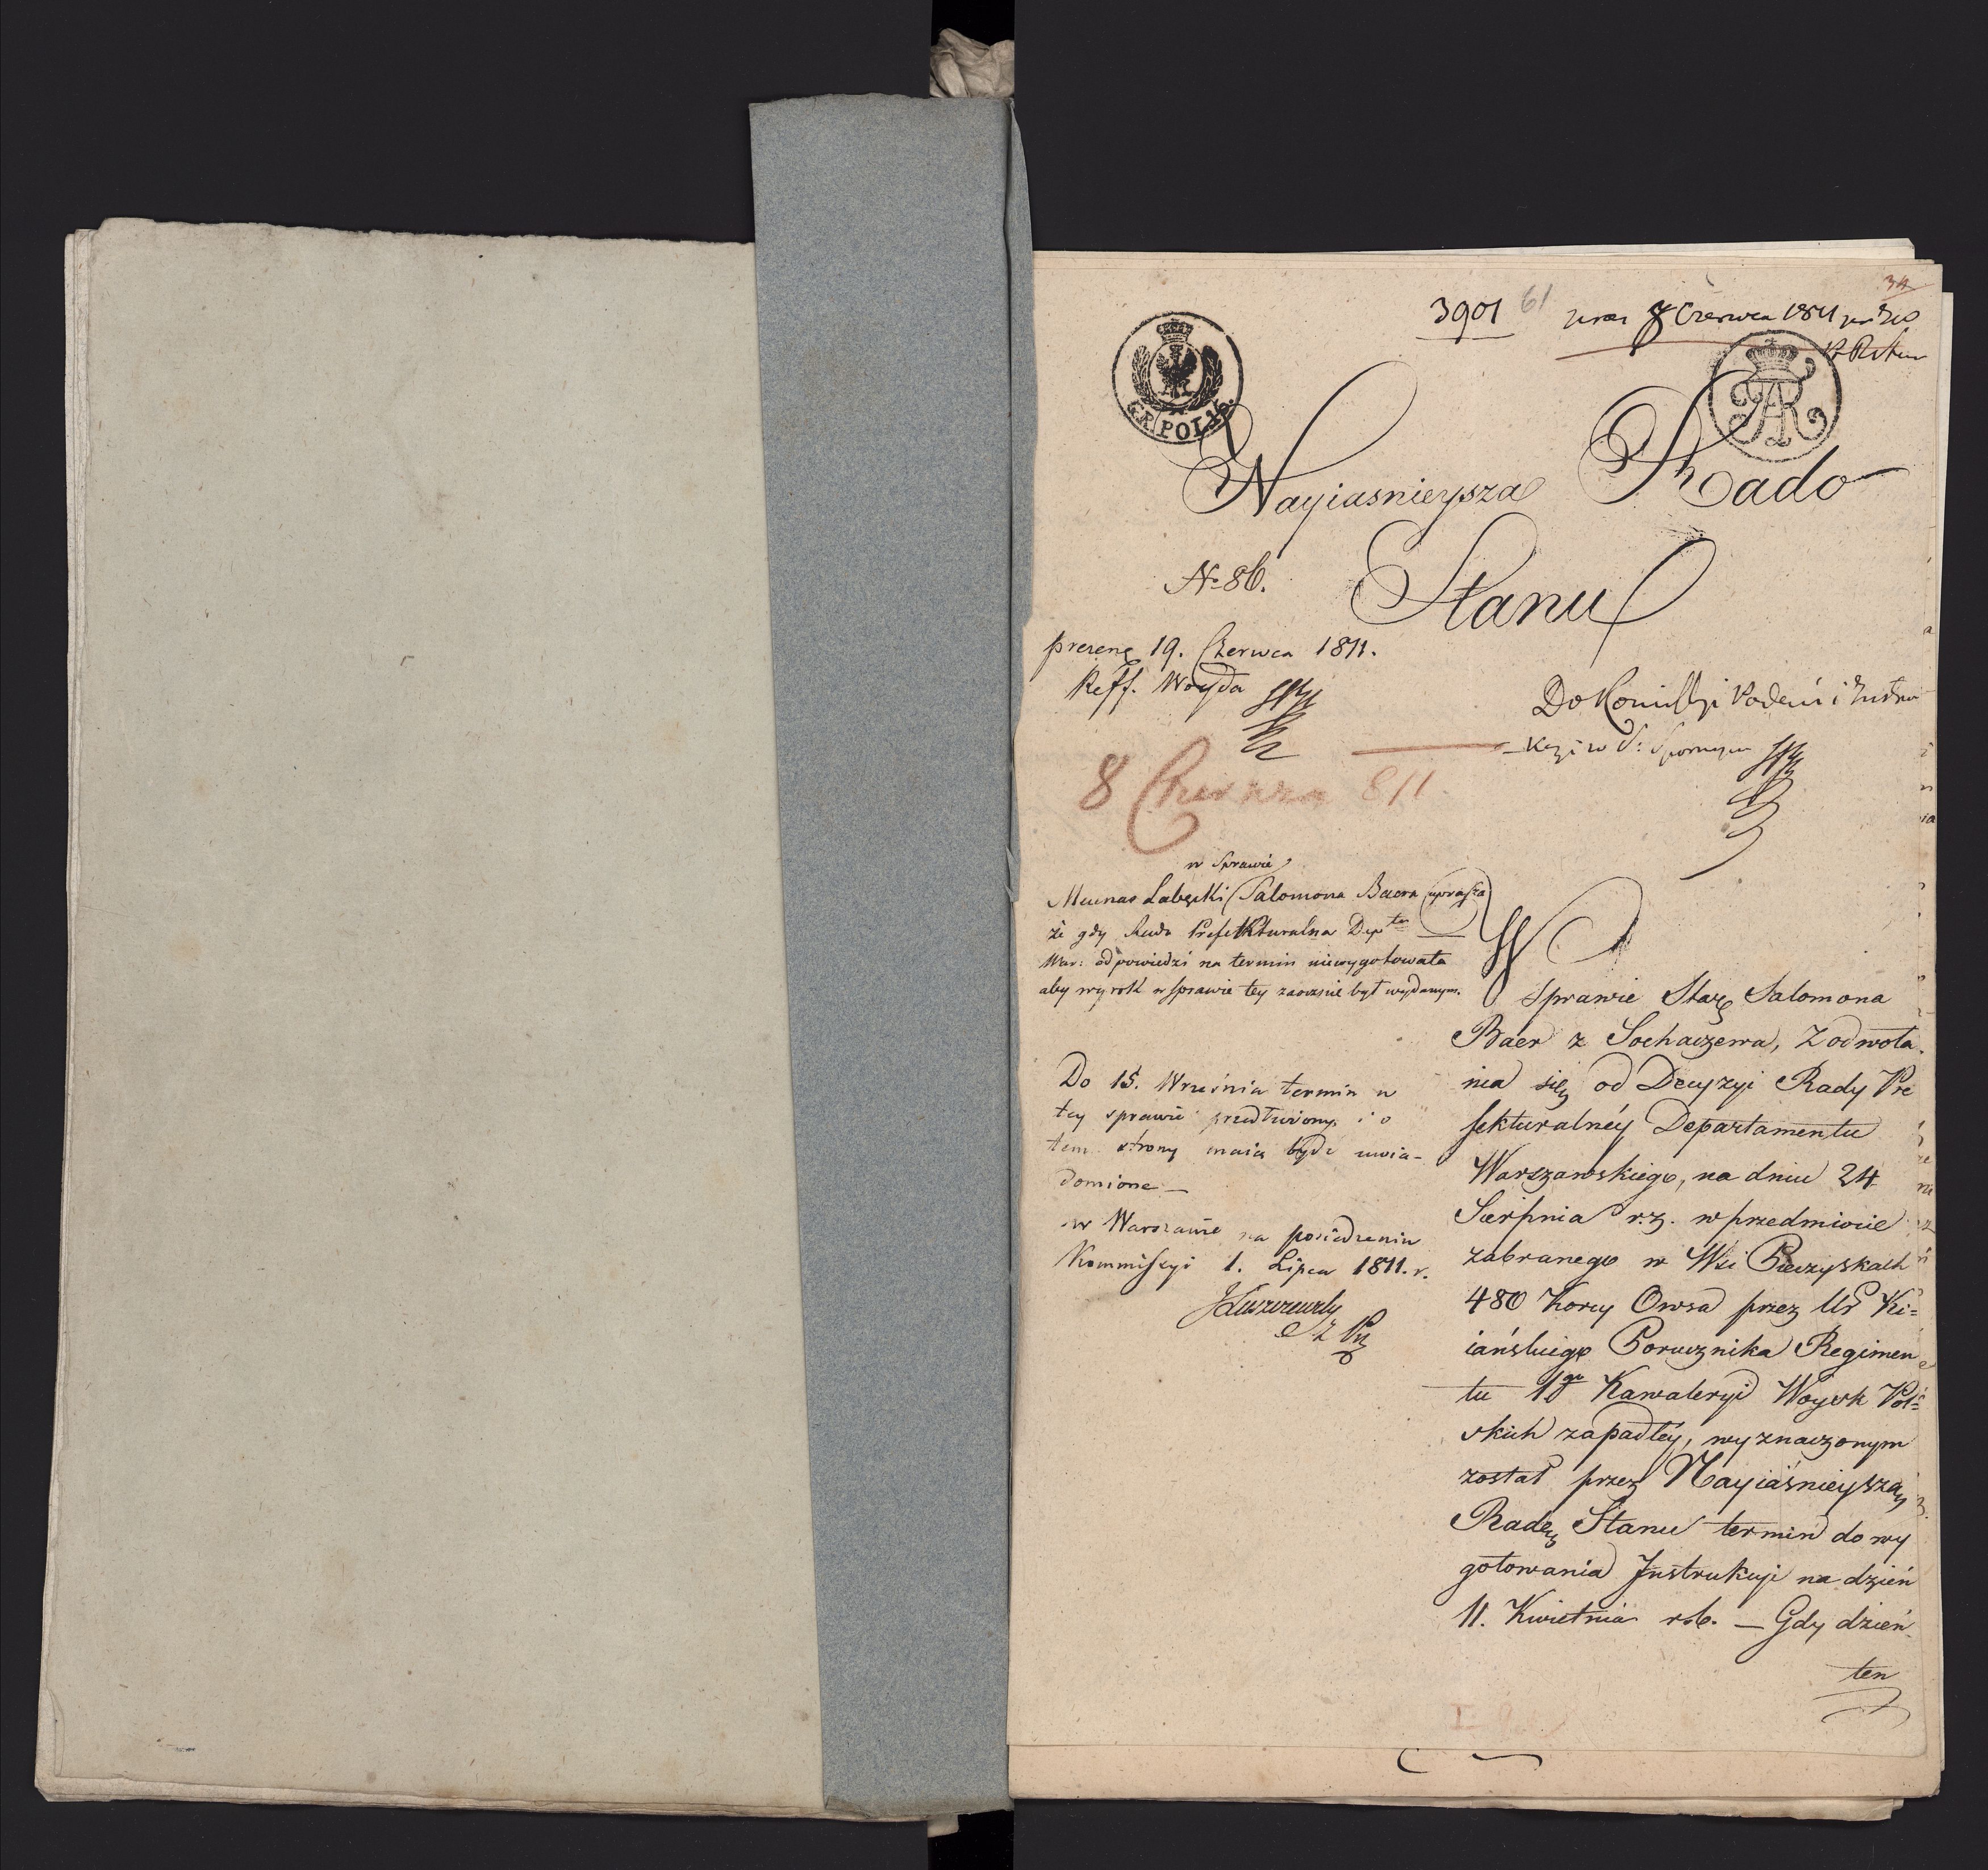 34
3901 61 8 Czerwca 1811
GR. POL. 15.
Nayiasnieysza Rado
Stanu
No 86.
prezenę 19. Czerwca 1811.
Reff. Woyda
Do Kommissyi Podań i Instru
kcyi w S: Spornym
8 Czerwca 811.
w Sprawie
Mecenas Łabęcki Salomona Baera uprasza
że gdy Rada Prefekturalna Depttu
War: odpowiedzi na termin niewygotowała
aby wyrok w sprawie tey zaocznie był wydanym.
Do 15. Września termin w
tey sprawie przedłużony i o
tem strony maią bydź uwia-
domione —
w Warszawie na posiedzeniu
Kommissyi 1. Lipca 1811. r.
W
Sprawie Starę Salomona
Baer z Sochaczewa, z odwoła
nia się od Decyzyi Rady Pre
fekturalnéy Departamentu
Warszawskiego, na dniu 24
Sierpnia r.z. w przedmiocie
zabranego w Wsi Pieczyskach
480 Korcy Owsa przez Ur Ki=
iańskiego Porucznika Regimen
tu 1go Kawaleryi Woysk Pol=
skich zapadłéy, wyznaczonym
został przez Nayiaśnieyszą
Radę Stanu termin do wy
gotowania Instrukcyi na dzień
11. Kwietnia r.b. — Gdy dzień
ten